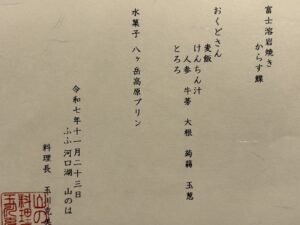 富士溶岩焼き
からす鰈
おくどさん
麦飯
けんちん汁
人参 牛蒡 大根 蒟蒻 玉葱
とろろ
水菓子 八ヶ岳高原プリン
令和七年十一月二十三日
ふふ河口湖 山のは
料理長 玉川